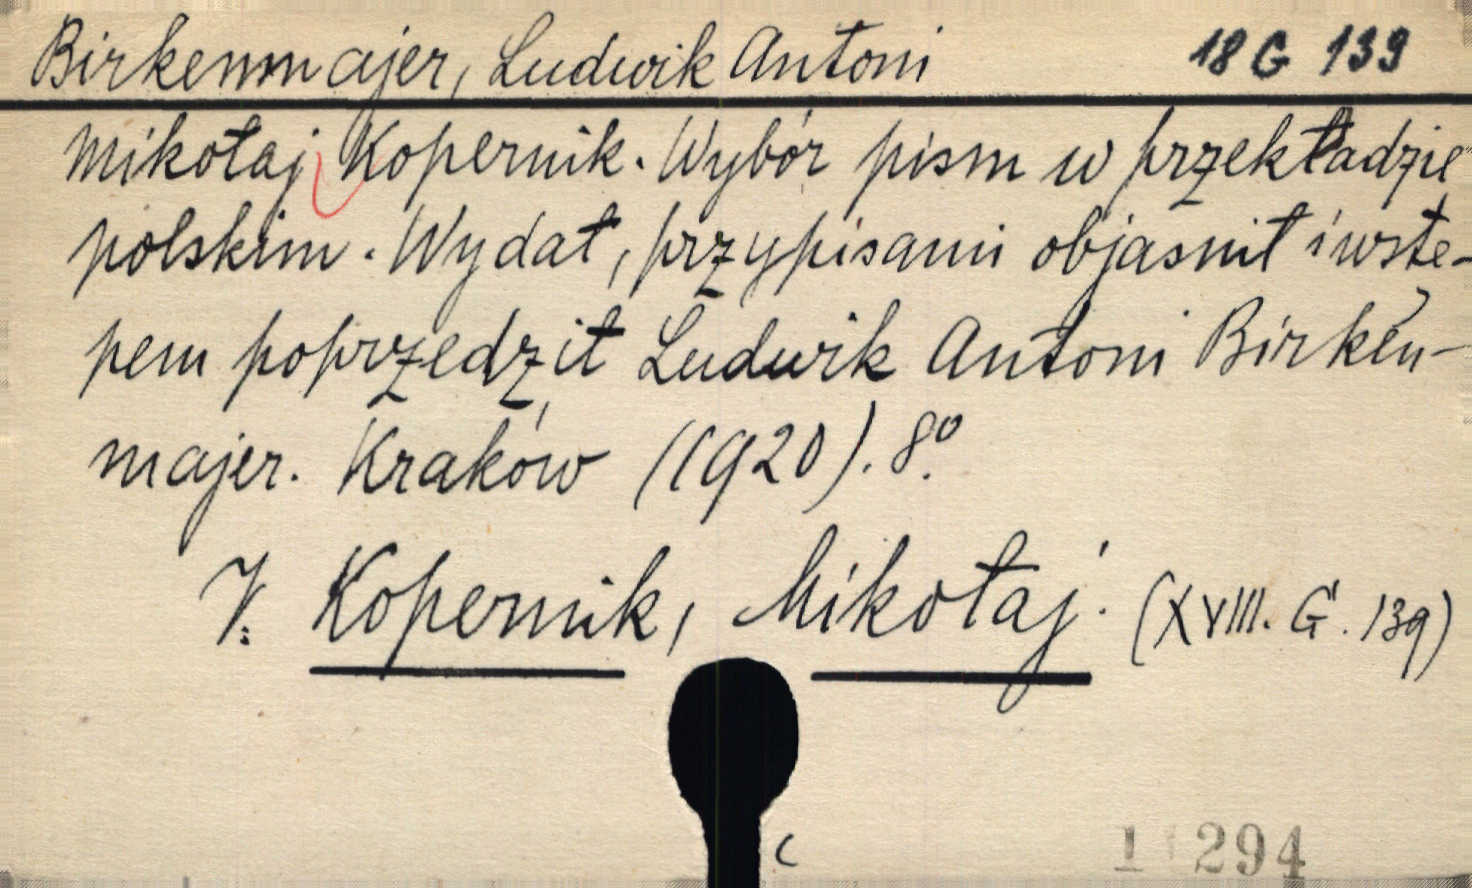 Birkenmajer, Ludwik Antoni 18 G 139
Mikołaj Kopernik. Wybór pism w przekładzie
polskim. Wydał, przypisami objasnił i wstę-
pem poprzedził Ludwik Antoni Birken-
majer. Kraków (1920). 8º.
V. Kopernik, Mikołaj. (XVIII. G. 139)
C
1 294